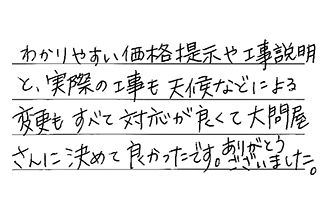 わかりやすい価格提示や工事説明
と、実際の工事も天候などによる
変更もすべて対応が良くて大問屋
さんに決めて良かったです。ありがとう
ございました。